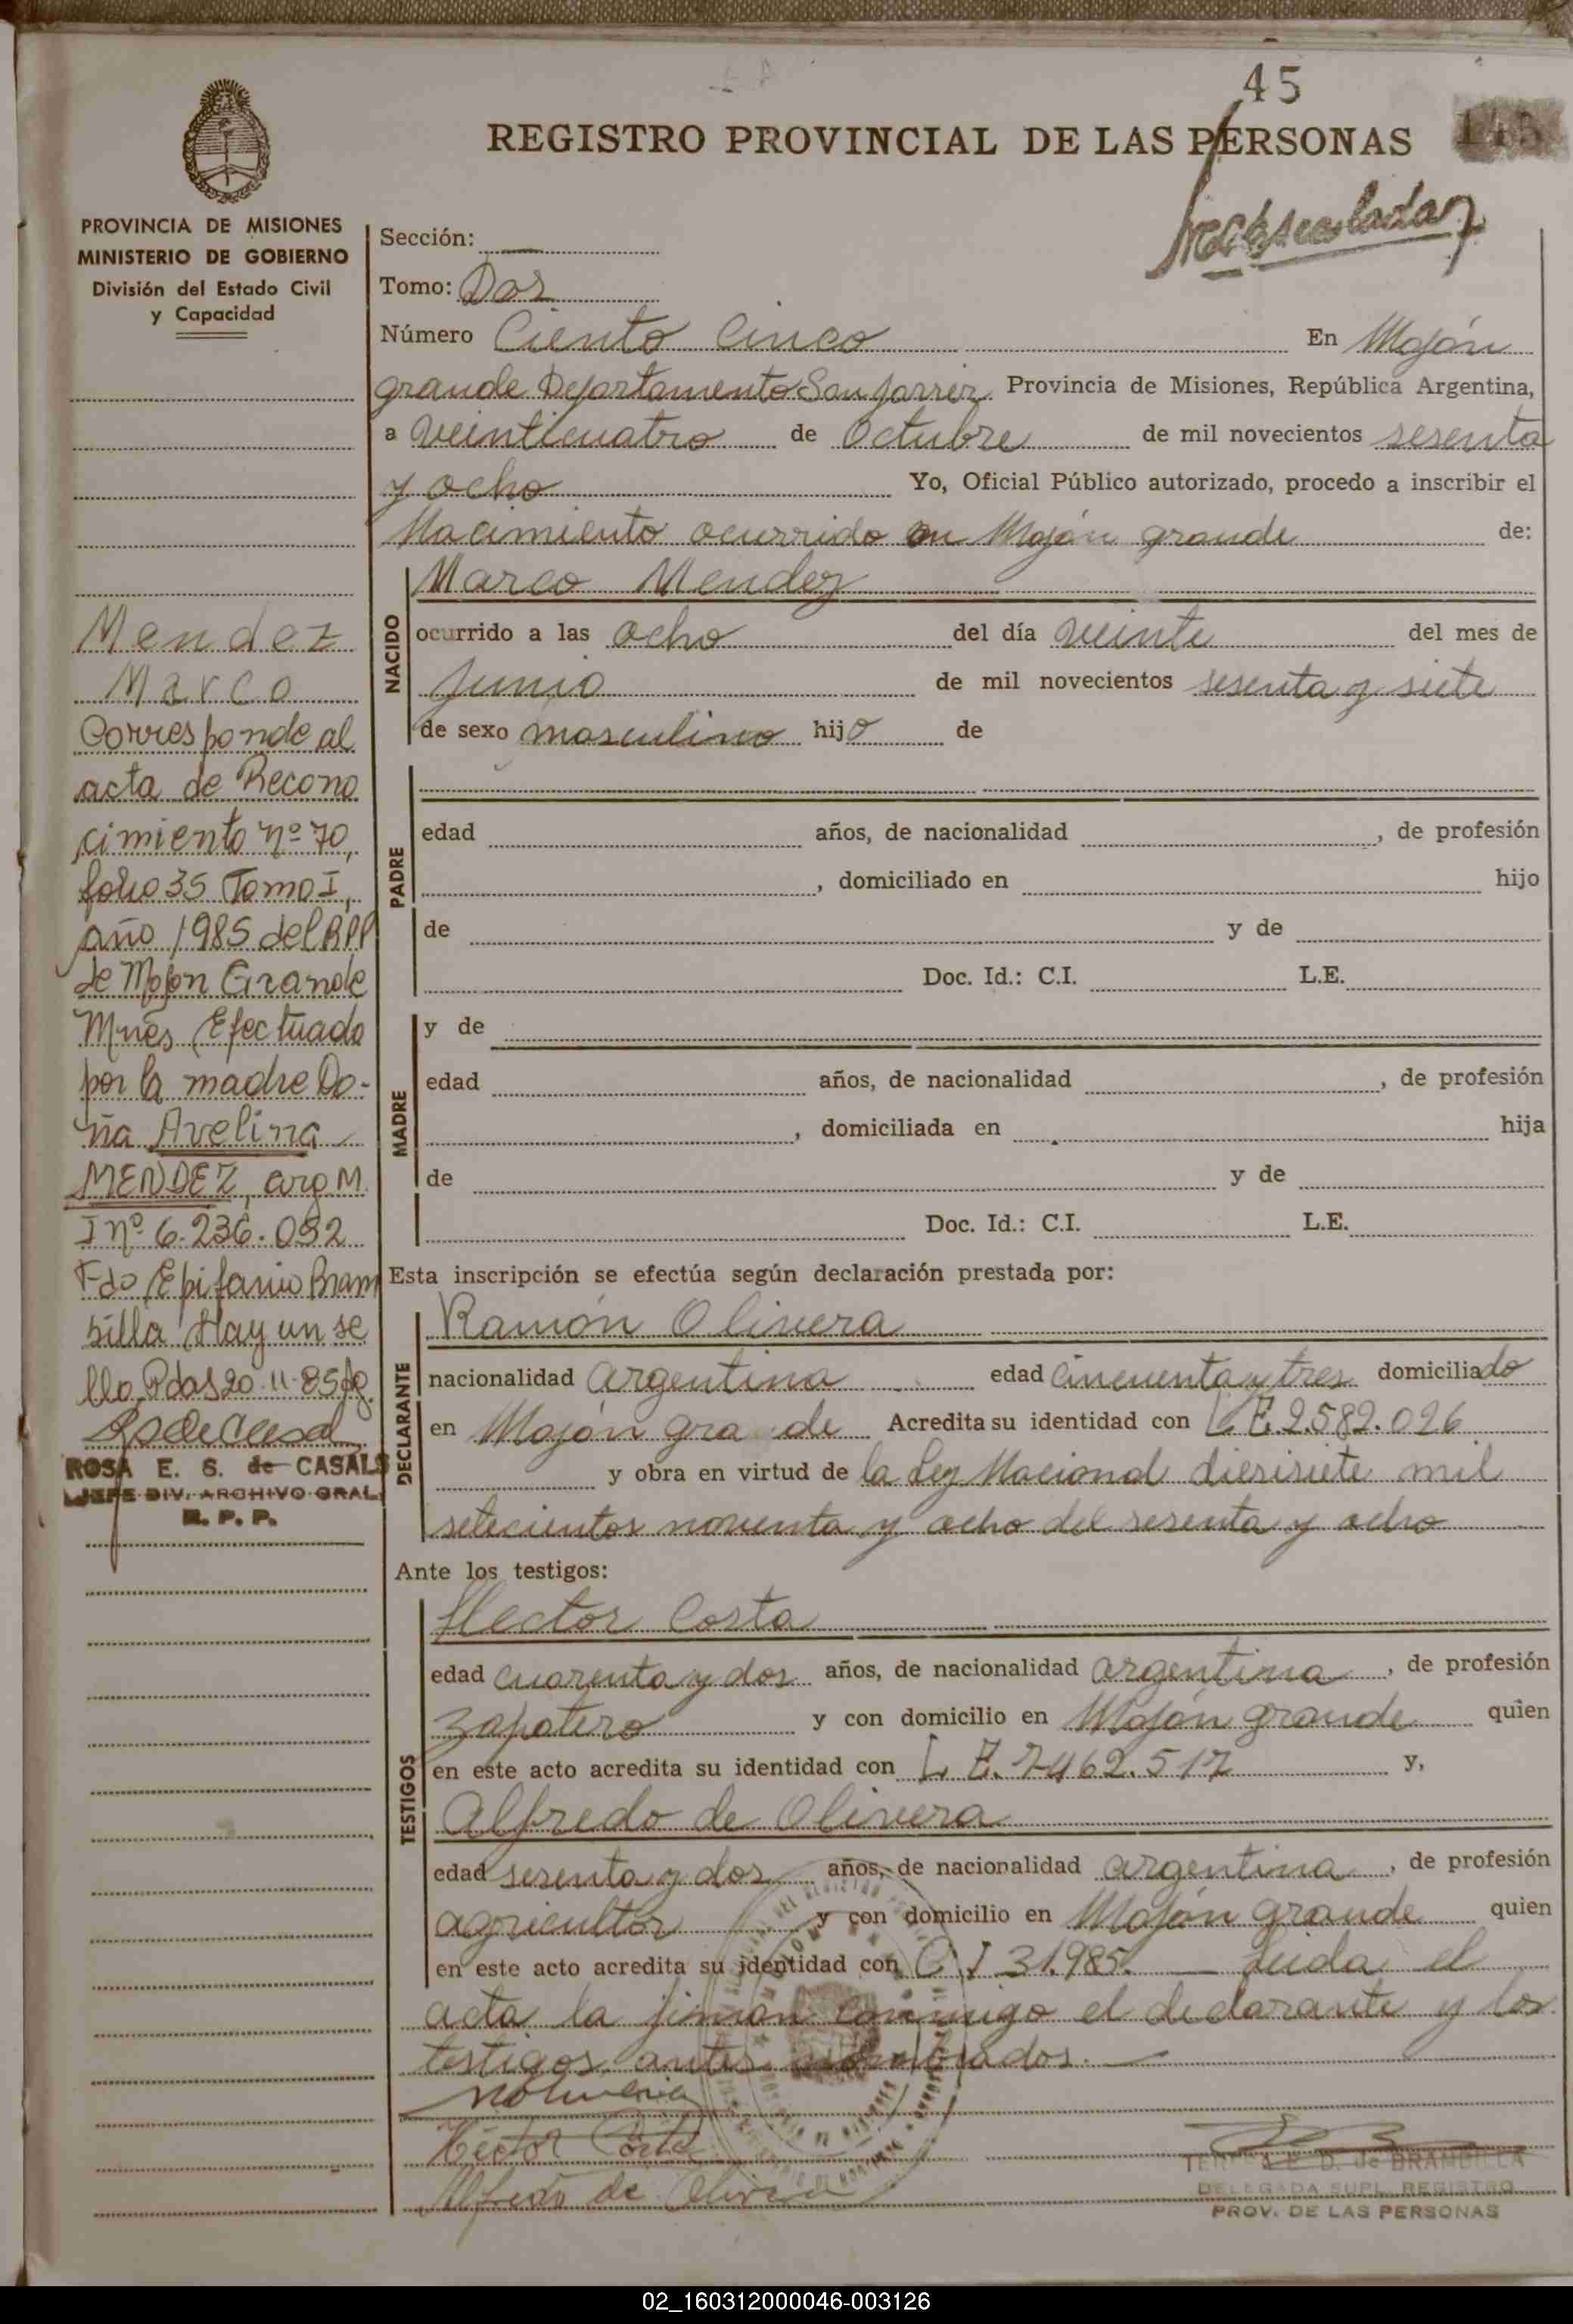 45
REGISTRO PROVINCIAL DE LAS PERSONAS
PROVINCIA DE MISIONES
MINISTERIO DE GOBIERNO
División del Estado Civil
y Capacidad
Mendez
Marco
Corresponde al
acta de Recono
cimiento nº 70,
folio 35 Tomo I,
año 1985 del RPP
de Mojon Grande
Mnes, Efectuado
por la madre Do-
ña Avelina
MENDEZ, arg M.
I nº 6.236.092
Fdo Epifanio Bram
billa Hay un se
llo. Pdas 20-11-85
ROSA E. S. de CASALS
JEFE DIV. ARCHIVO GRAL.
R. P. P.
Sección:
Tomo: Dos
Número Ciento Cinco En Mojón
grande Departamento San Javier Provincia de Misiones, República Argentina,
a veinticuatro de Octubre de mil novecientos sesenta
y ocho Yo, Oficial Público autorizado, procedo a inscribir el
Nacimiento ocurrido en Mojón grande de:
NACIDO
Marco Mendez
ocurrido a las ocho del día veinte del mes de
Junio de mil novecientos sesenta y siete
de sexo masculino hijo de
PADRE
edad años, de nacionalidad , de profesión
, domiciliado en hijo
de y de
Doc. Id.: C.I. L.E.
MADRE
y de
edad años, de nacionalidad , de profesión
, domiciliada en hija
de y de
Doc. Id.: C.I. L.E.
Esta inscripción se efectúa según declaración prestada por:
DECLARANTE
Ramón Olivera
nacionalidad argentina edad cincuenta y tres domiciliado
en Mojón gra de Acredita su identidad con L.E. 2.582.026
y obra en virtud de la Ley Nacional diesisiete mil
setecientos noventa y ocho del sesenta y ocho
Ante los testigos:
TESTIGOS
Hector Costa
edad cuarenta y dos años, de nacionalidad argentina, de profesión
zapatero y con domicilio en Mojón grande quien
en este acto acredita su identidad con L.E. 7462.517 y,
Alfredo de Olivera
edad sesenta y dos años, de nacionalidad argentina, de profesión
agricultor y con domicilio en Mojón grande quien
en este acto acredita su identidad con C I 31.985. Leida el
acta la firman conmigo el declarante y los
testigos antes nombrados.
Hector Costa
Alfredo de Olivera
D. de BRAMBILLA
DELEGADA SUPL. REGISTRO
PROV. DE LAS PERSONAS
02_160312000046-003126